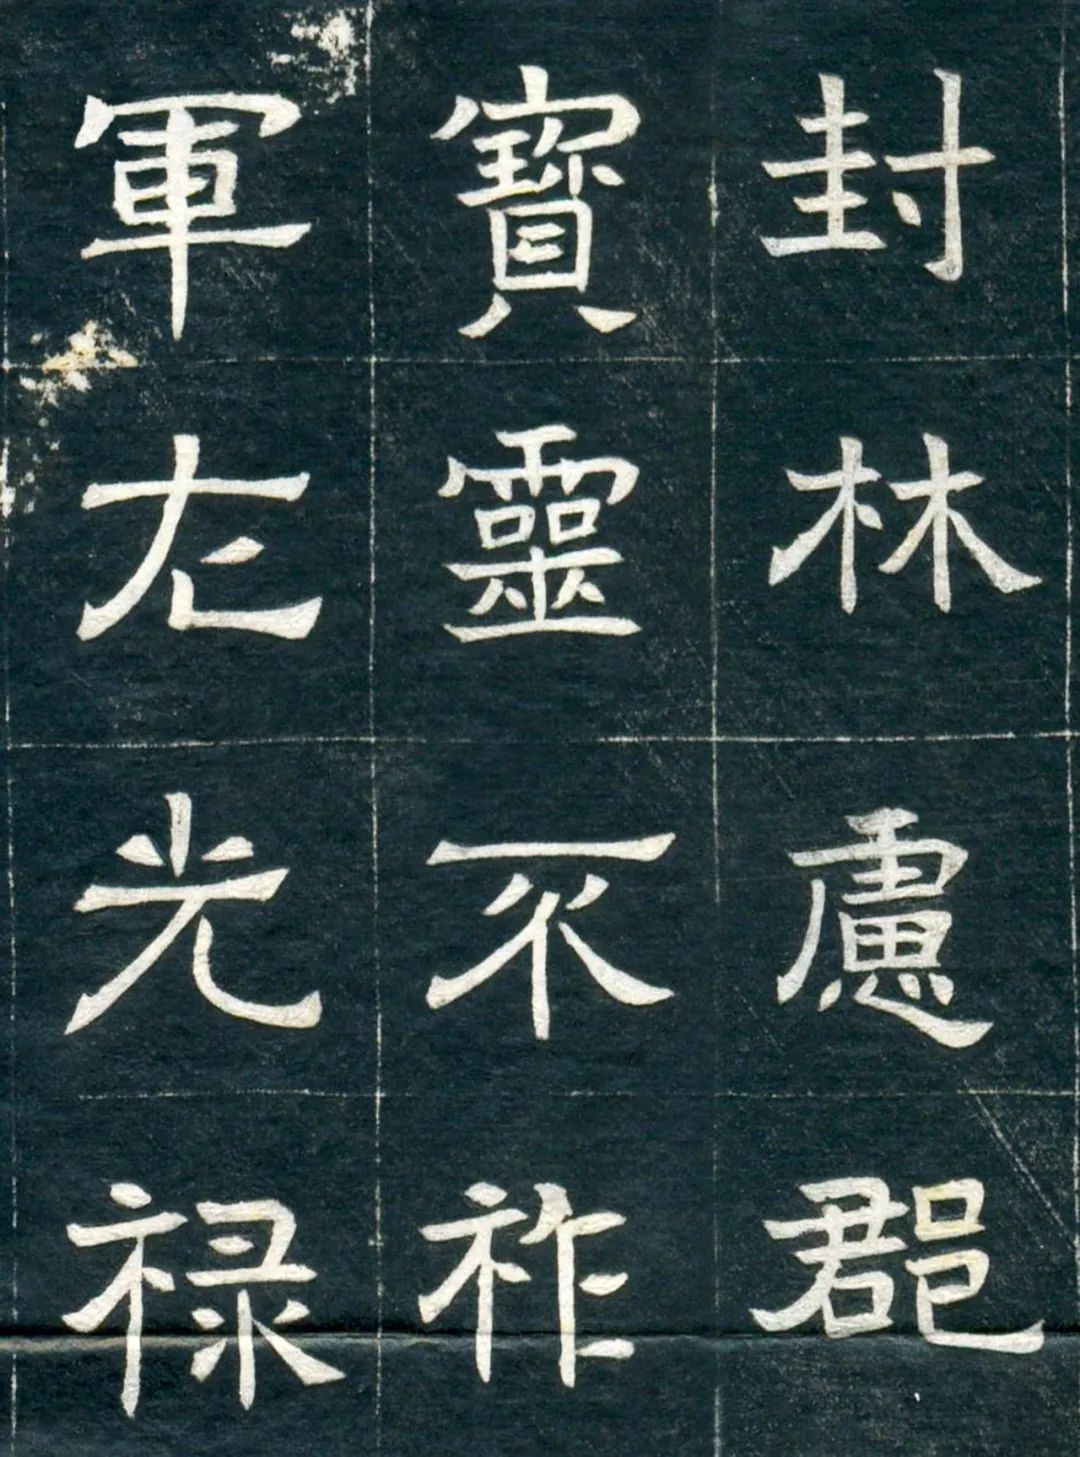 封林慮郡
寶靈不祚
軍左光禄